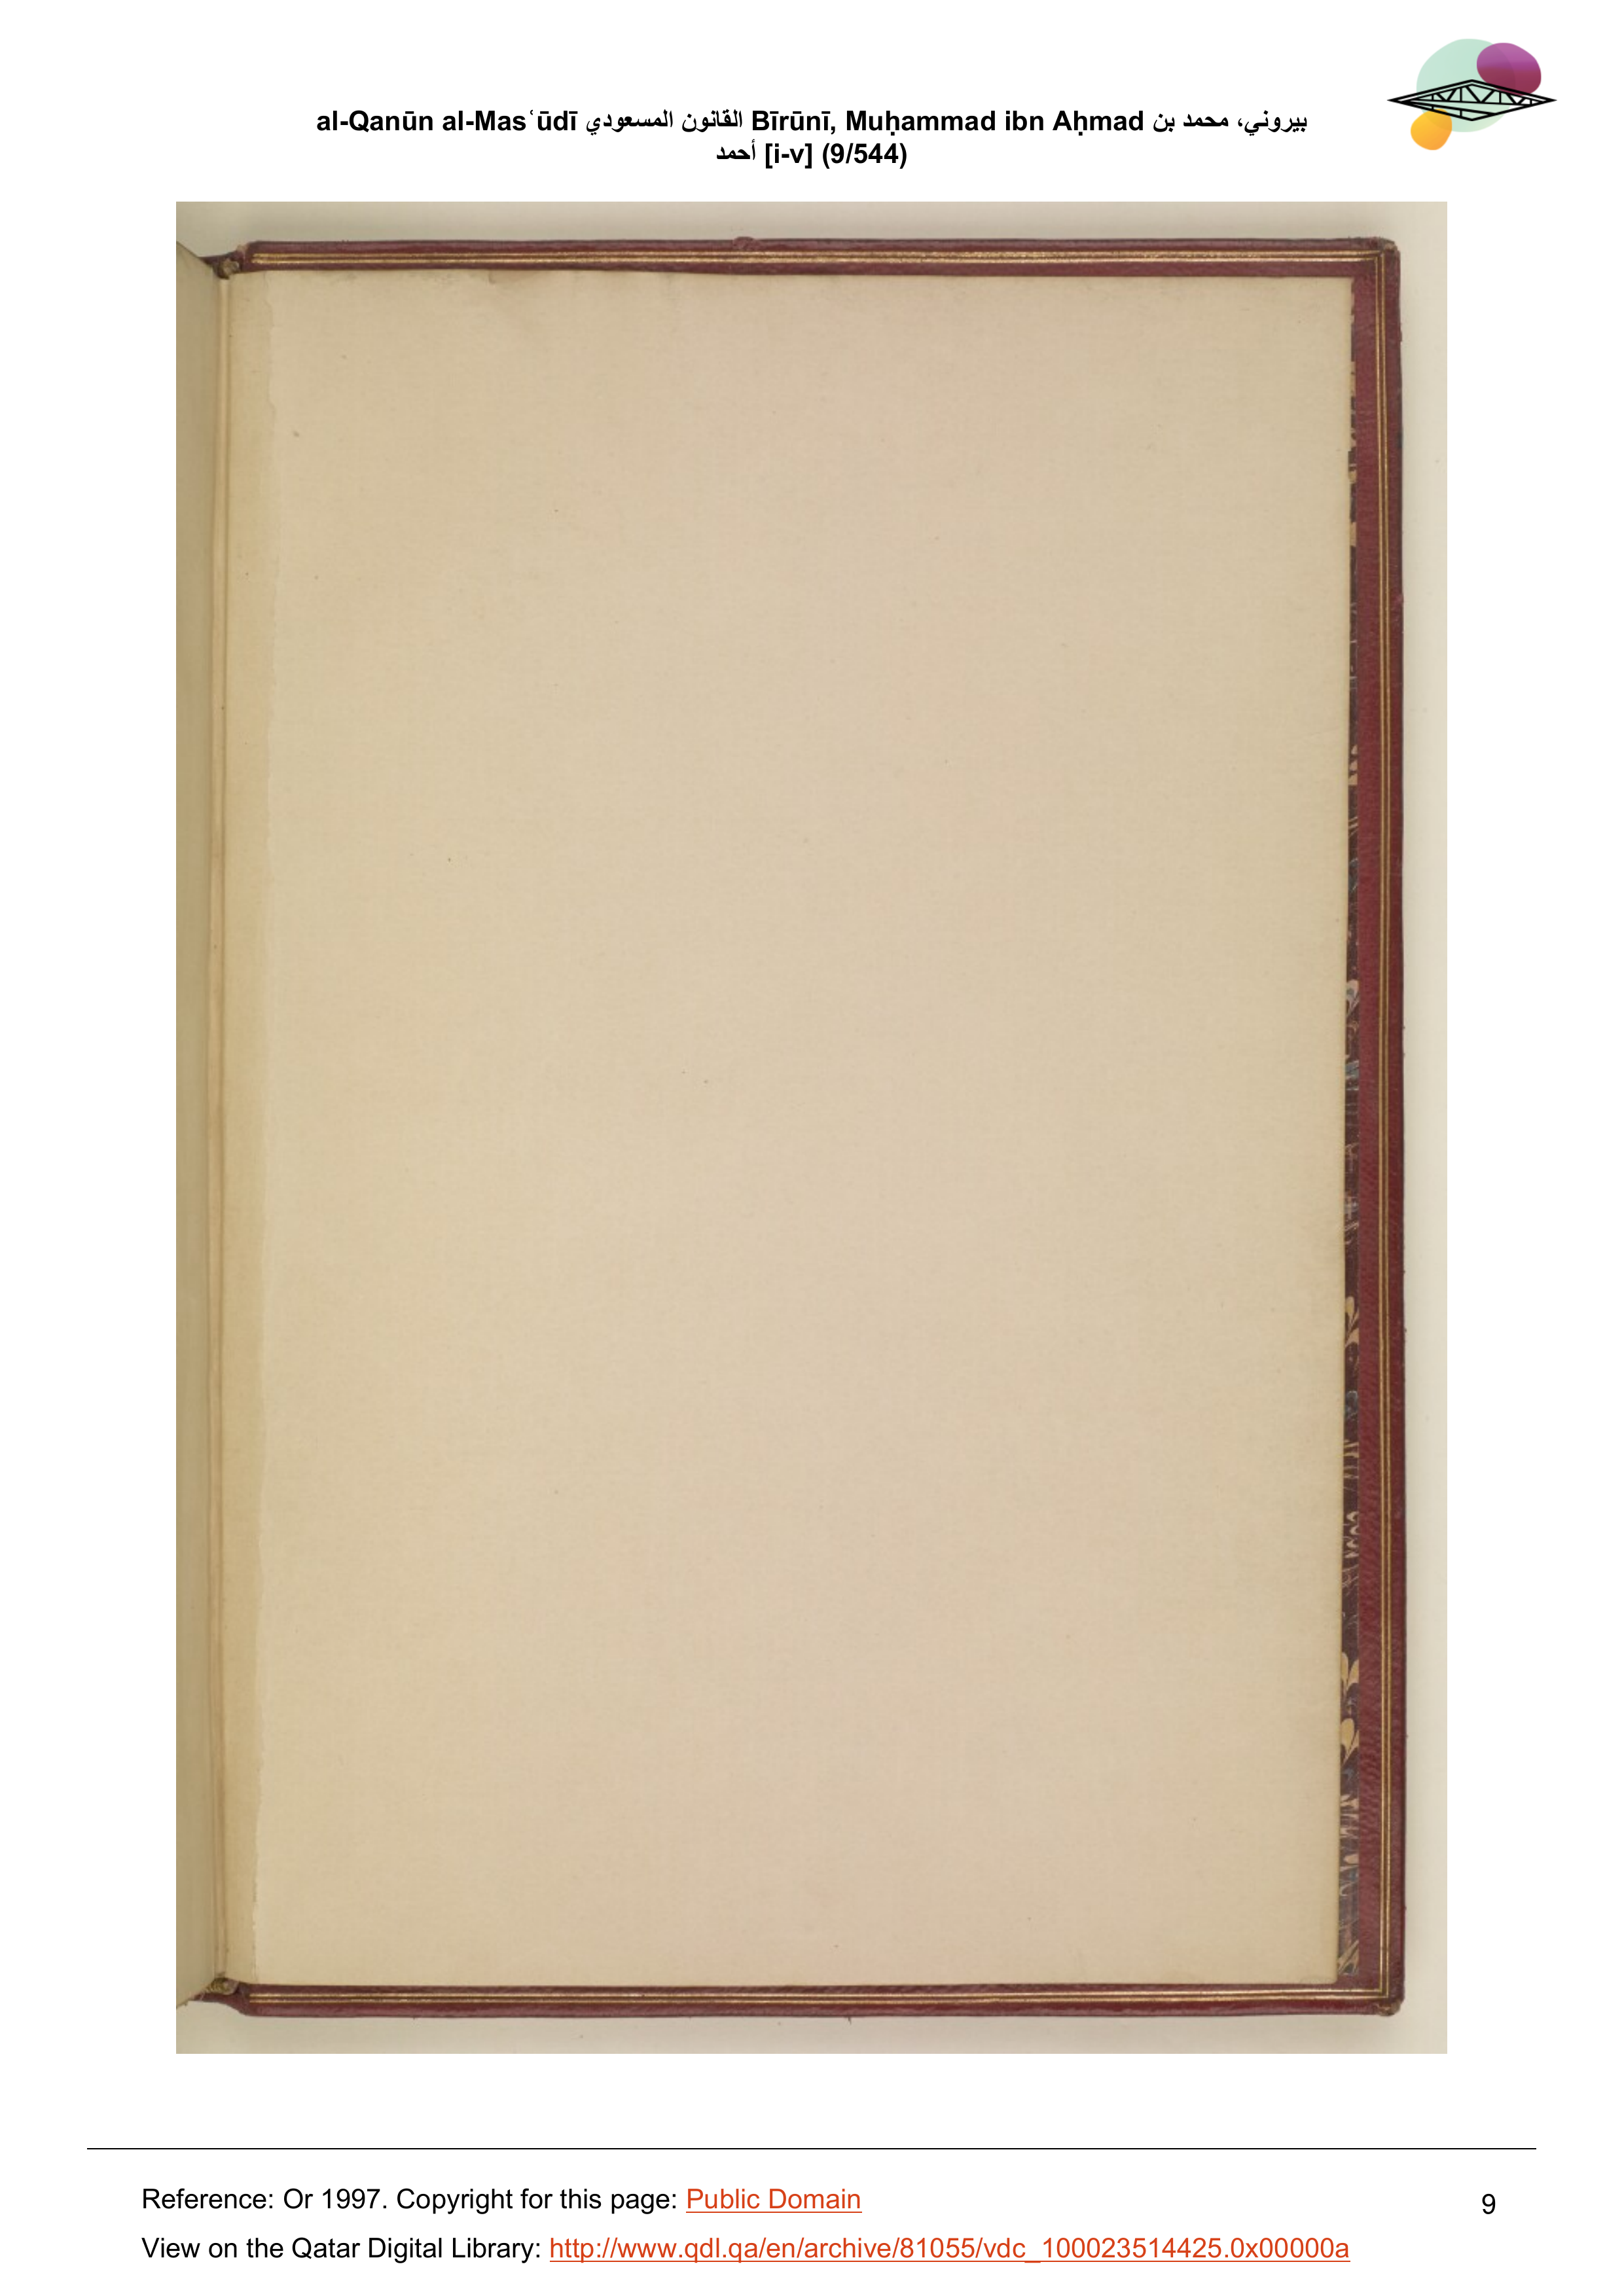 al-Qanūn al-Masʿūdī القانون المسعودي Bīrūnī, Muḥammad ibn Aḥmad بيروني، محمد بن
أحمد [i-v] (9/544)
Reference: Or 1997. Copyright for this page: Public Domain
9
View on the Qatar Digital Library: http://www.qdl.qa/en/archive/81055/vdc_100023514425.0x00000a